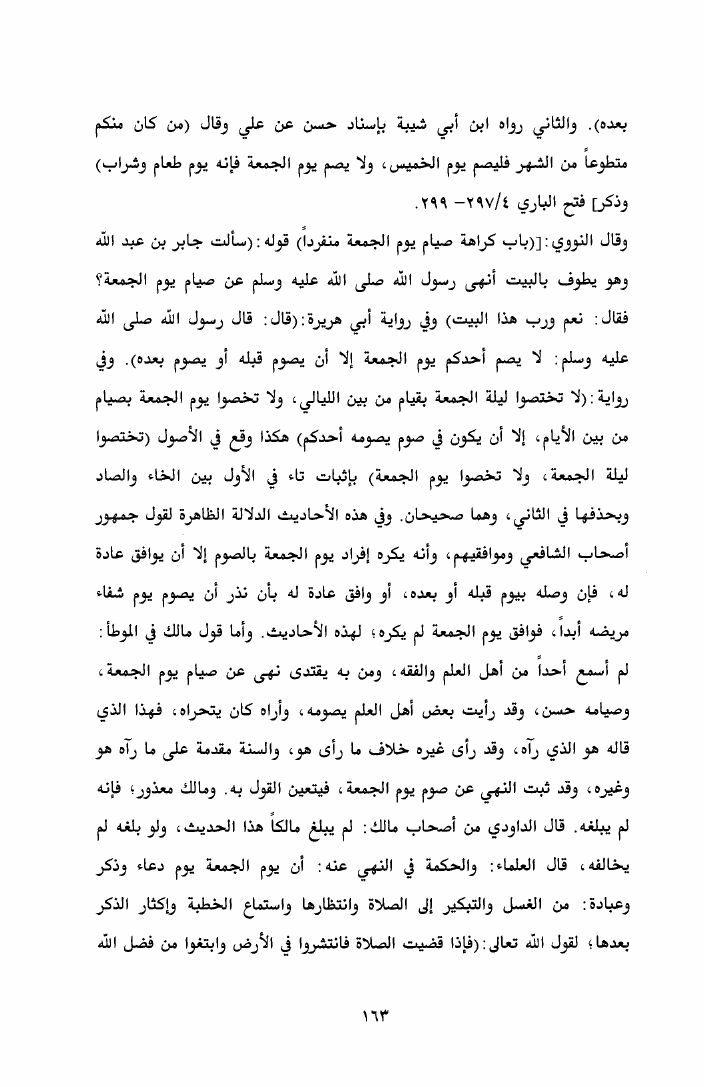 بعده). والثاني رواه ابن أبي شيبة بإسناد حسن عن علي وقال (من كان منكم
متطوعاً من الشهر فليصم يوم الخميس، ولا يصم يوم الجمعة فإنه يوم طعام وشراب)
وذكر] فتح الباري ٢٩٧/٤ -٢٩٩ .
وقال النووي:[(باب كراهة صيام يوم الجمعة منفرداً) قوله:(سألت جابر بن عبد الله
وهو يطوف بالبيت أنهى رسول الله صلى الله عليه وسلم عن صيام يوم الجمعة؟
فقال: نعم ورب هذا البيت) وفي رواية أبي هريرة:(قال: قال رسول الله صلى الله
عليه وسلم: لا يصم أحدكم يوم الجمعة إلا أن يصوم قبله أو يصوم بعده). وفي
رواية:(لا تختصوا ليلة الجمعة بقيام من بين الليالي، ولا تخصوا يوم الجمعة بصيام
من بين الأيام، إلا أن يكون في صوم يصومه أحدكم) هكذا وقع في الأصول (تختصوا
ليلة الجمعة، ولا تخصوا يوم الجمعة) بإثبات تاء في الأول بين الخاء والصاد
وبحذفها في الثاني، وهما صحيحان. وفي هذه الأحاديث الدلالة الظاهرة لقول جمهور
أصحاب الشافعي وموافقيهم، وأنه يكره إفراد يوم الجمعة بالصوم إلا أن يوافق عادة
له، فإن وصله بيوم قبله أو بعده، أو وافق عادة له بأن نذر أن يصوم يوم شفاء
مريضه أبداً، فوافق يوم الجمعة لم يكره؛ لهذه الأحاديث. وأما قول مالك في الموطأ:
لم أسمع أحداً من أهل العلم والفقه، ومن به يقتدى نهى عن صيام يوم الجمعة،
وصيامه حسن، وقد رأيت بعض أهل العلم يصومه، وأراه كان يتحراه، فهذا الذي
قاله هو الذي رآه، وقد رأى غيره خلاف ما رأى هو، والسنة مقدمة على ما رآه هو
وغيره، وقد ثبت النهي عن صوم يوم الجمعة، فيتعين القول به. ومالك معذور؛ فإنه
لم يبلغه. قال الداودي من أصحاب مالك: لم يبلغ مالكاً هذا الحديث، ولو بلغه لم
يخالفه، قال العلماء: والحكمة في النهي عنه: أن يوم الجمعة يوم دعاء وذكر
وعبادة: من الغسل والتبكير إلى الصلاة وانتظارها واستماع الخطبة وإكثار الذكر
بعدها؛ لقول الله تعالى:(فإذا قضيت الصلاة فانتشروا في الأرض وابتغوا من فضل الله
١٦٣